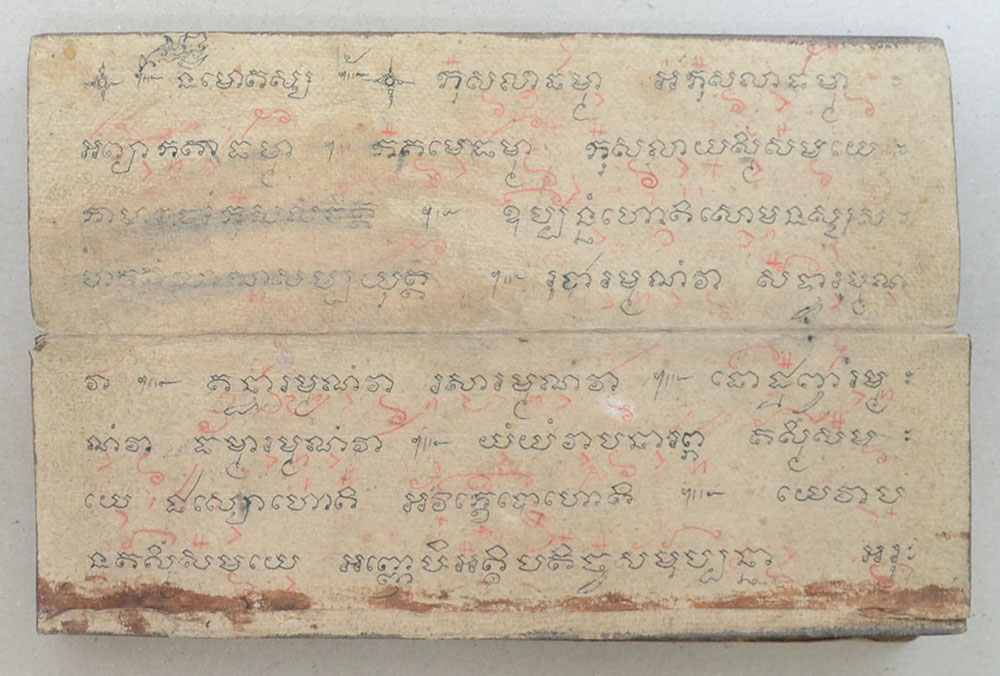 នមោតស្ស កុសលាធម្មា អកុសលាធម្មា ៖
អព្យាកតាធម្មា កតមេធម្មា កុសលាយស្មិំសមយេ ៖
កាមាវចរំកុសលំចិត្តំ ឧប្បន្នំហោតិសោមនស្សស ៖
ហគតំញាណសម្បយុត្តំ រូបារម្មណំវា សទ្ទារម្មណំ
វា គន្ធារម្មណំវា រសារម្មណំវា ផោដ្ឋព្វារម្ម ៖
ណំវា ធម្មារម្មណំវា យំយំវាបនារព្ភ តស្មិំសម ៖
យេ ផស្សោហោតិ អវិក្ខេបោហោតិ យេវាប
នតស្មិំសមយេ អញ្ញេបិអត្ថិបដិច្ចសមុប្បន្នា អរូ ៖